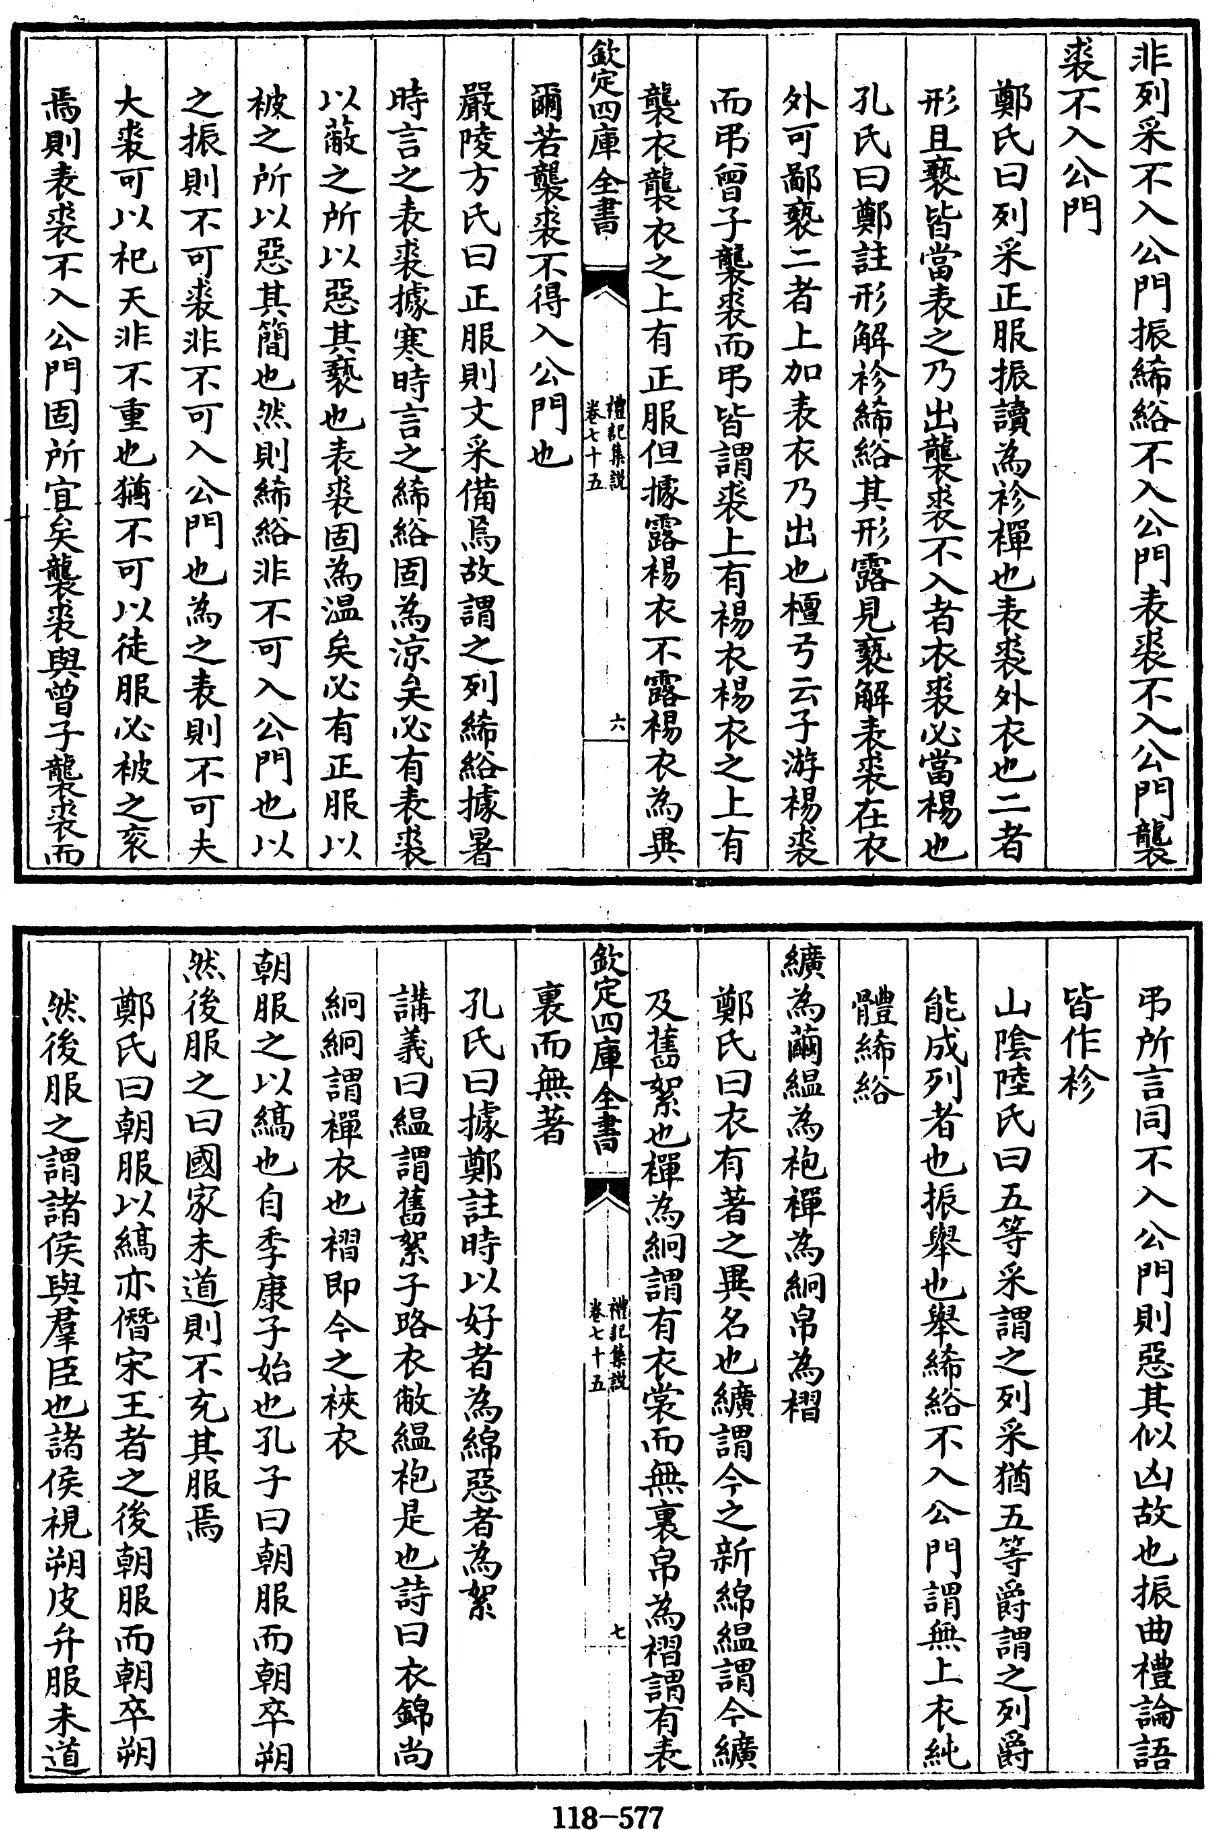 非列采不入公門振絺綌不入公門表裘不入公門襲
裘不入公門
鄭氏曰列采正服振讀為袗襌也表裘外衣也二者
形且褻皆當表之乃出襲裘不入者衣裘必當裼也
孔氏曰鄭註形解袗絺綌其形露見褻解表裘在衣
外可鄙褻二者上加表衣乃出也檀弓云子游裼裘
而弔曾子襲裘而弔皆謂裘上有裼衣裼衣之上有
襲衣襲衣之上有正服但據露裼衣不露裼衣為異
欽定四庫全書
禮記集説
卷七十五
六
爾若襲裘不得入公門也
嚴陵方氏曰正服則文采備焉故謂之列絺綌據暑
時言之表裘據寒時言之絺綌固為涼矣必有表裘
以蔽之所以惡其褻也表裘固為温矣必有正服以
被之所以惡其簡也然則絺綌非不可入公門也以
之振則不可裘非不可入公門也為之表則不可夫
大裘可以祀天非不重也猶不可以徒服必被之衮
焉則表裘不入公門固所宜矣襲裘與曾子襲裘而
弔所言同不入公門則惡其似凶故也振曲禮論語
皆作袗
山陰陸氏曰五等采謂之列采猶五等爵謂之列爵
能成列者也振舉也舉絺綌不入公門謂無上衣純
體絺綌
纊為繭緼為袍襌為絅帛為褶
鄭氏曰衣有著之異名也纊謂今之新綿緼謂今纊
及舊絮也襌為絅謂有衣裳而無裏帛為褶謂有表
欽定四庫全書
禮記集説
卷七十五
七
裏而無著
孔氏曰據鄭註時以好者為綿惡者為絮
講義曰緼謂舊絮子路衣敝緼袍是也詩曰衣錦尚
絅絅謂襌衣也褶即今之裌衣
朝服之以縞也自季康子始也孔子曰朝服而朝卒朔
然後服之曰國家未道則不充其服焉
鄭氏曰朝服以縞亦僭宋王者之後朝服而朝卒朔
然後服之謂諸侯與羣臣也諸侯視朔皮弁服未道
118-577